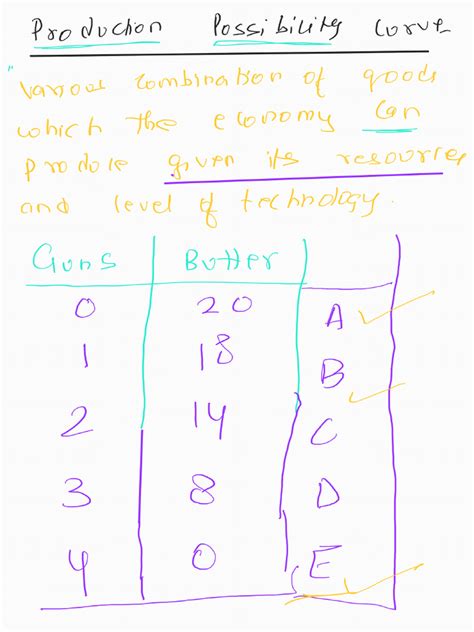 Production Possibility Curve
" Various combination of goods
which the economy can
produce given its resources
and level of technology.
Guns Butter
0 20 A
1 18 B
2 14 C
3 8 D
4 0 E